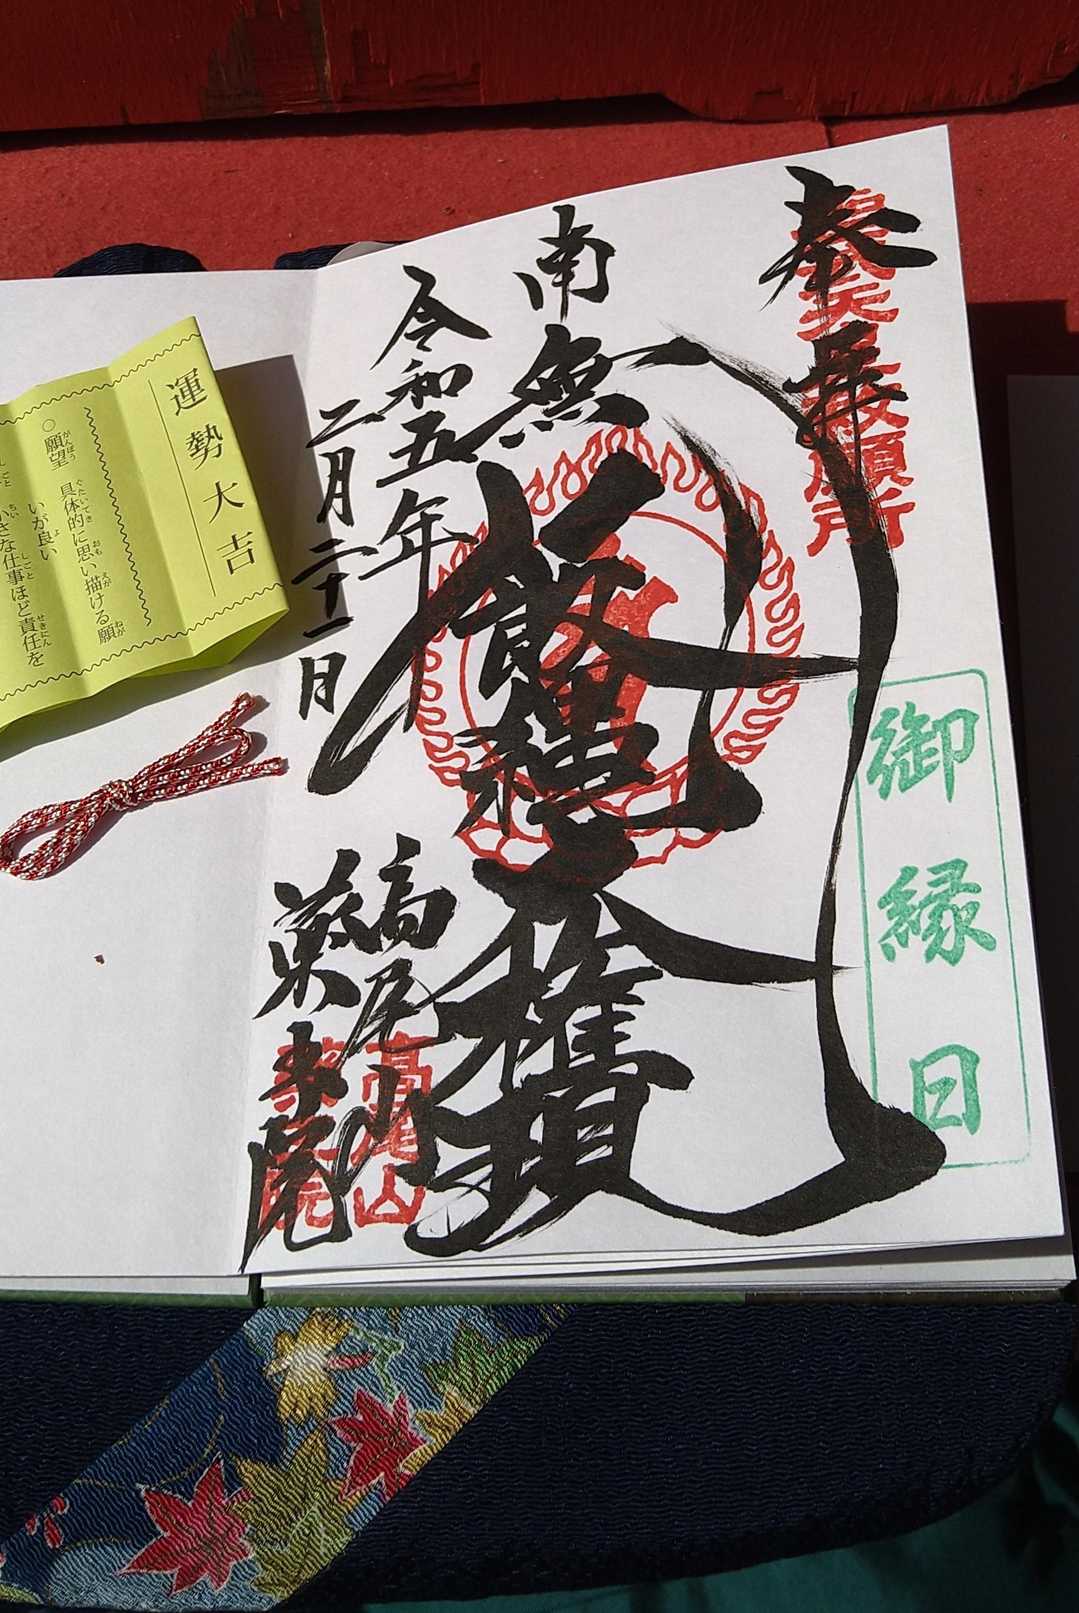 奉拝
御縁日
南無飯縄大権現
令和五年
二月二十一日
高尾山
薬王院
高尾山
運勢大吉
○願望 具体的に思い描ける願
いが良い
さな仕事ほど責任を